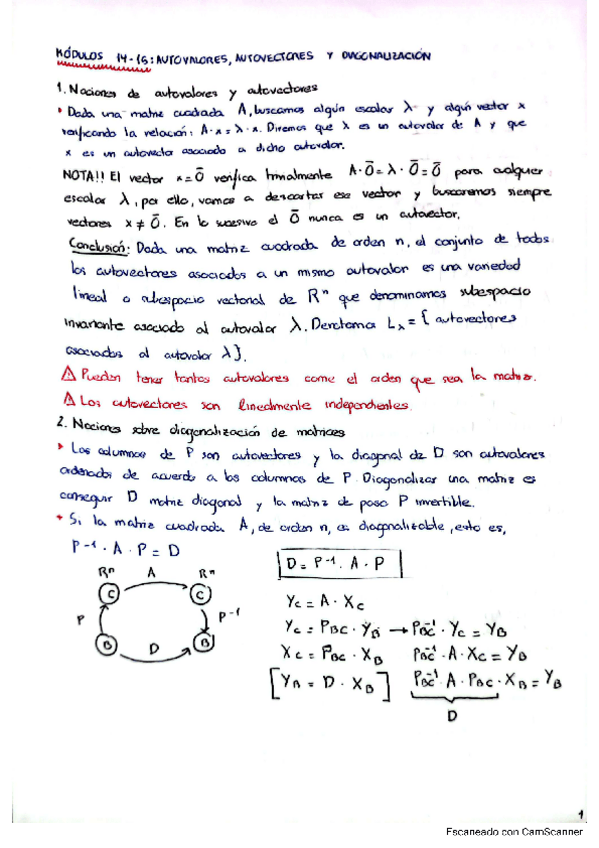 MÓDULOS 14-15: AUTOVALORES, AUTOVECTORES Y DIAGONALIZACIÓN
1. Nociones de autovalores y autovectores
• Dada una matriz cuadrada A, buscamos algún escalar λ y algún vector x
verificando la relación: A·x = λ·x. Diremos que λ es un autovalor de A y que
x es un autovector asociado a dicho autovalor.
NOTA!! El vector x = Ō verifica trivialmente A·Ō = λ·Ō = Ō para cualquier
escalar λ, por ello, vamos a descartar ese vector y buscaremos siempre
vectores x ≠ Ō. En lo sucesivo el Ō nunca es un autovector.
Conclusión: Dada una matriz cuadrada de orden n, el conjunto de todos
los autovectores asociados a un mismo autovalor es una variedad
lineal o subespacio vectorial de Rⁿ que denominamos subespacio
invariante asociado al autovalor λ. Denotamos Lλ = { autovectores
asociados al autovalor λ}.
⚠ Pueden tener tantos autovalores como el orden que sea la matriz.
⚠ Los autovectores son linealmente independientes.
2. Nociones sobre diagonalización de matrices
• Las columnas de P son autovectores y la diagonal de D son autovalores
ordenados de acuerdo a las columnas de P. Diagonalizar una matriz es
conseguir D matriz diagonal y la matriz de paso P invertible.
• Si la matriz cuadrada A, de orden n, es diagonalizable, esto es,
P⁻¹·A·P = D
D = P⁻¹·A·P
Rⁿ A Rⁿ
C C
P P⁻¹
B D B
Yc = A·Xc
Yc = PBC·YB → PBC⁻¹·Yc = YB
Xc = PBC·XB PBC⁻¹·A·Xc = YB
[YB = D·XB] PBC⁻¹·A·PBC·XB = YB
D
1
Escaneado con CamScanner